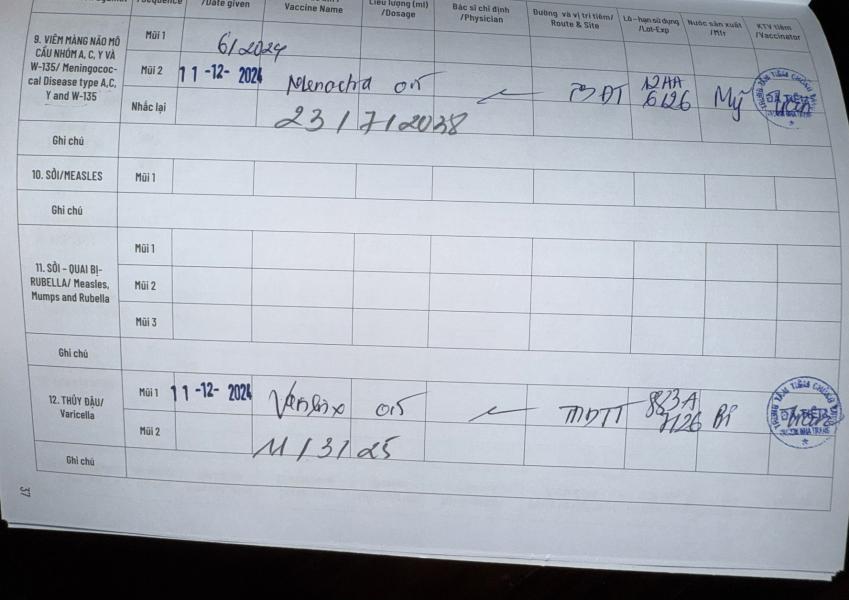 /Sequence /Date given Vaccine Name Liều lượng (ml) /Dosage Bác sĩ chỉ định /Physician Đường và vị trí tiêm/ Route & Site Lô - hạn sử dụng /Lot-Exp Nước sản xuất /Mfr KTV tiêm /Vaccinator
9. VIÊM MÀNG NÃO MÔ
CẦU NHÓM A, C, Y VÀ
W-135/ Meningococ-
cal Disease type A,C,
Y and W-135
Mũi 1 6/2024
Mũi 2 11-12-2024 Menactra 0.5 12AA 6126 Mỹ
Nhắc lại 23/7/2038
Ghi chú
10. SỞI/MEASLES Mũi 1
Ghi chú
11. SỞI - QUAI BỊ-
RUBELLA/ Measles,
Mumps and Rubella
Mũi 1
Mũi 2
Mũi 3
Ghi chú
12. THỦY ĐẬU/
Varicella
Mũi 1 11-12-2024 0.5 Bỉ
Mũi 2 11/3/25
Ghi chú
37